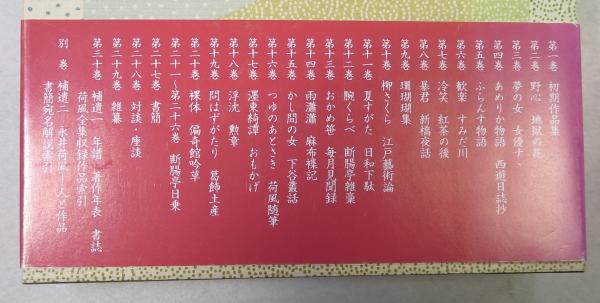 第一巻 初期作品集
第二巻 野心 地獄の花
第三巻 夢の女 女優ナヽ
第四巻 あめりか物語 西遊日誌抄
第五巻 ふらんす物語
第六巻 歓楽 すみだ川
第七巻 冷笑 紅茶の後
第八巻 暴君 新橋夜話
第九巻 珊瑚集
第十巻 柳さくら 江戸藝術論
第十一巻 夏すがた 日和下駄
第十二巻 腕くらべ 断腸亭雑藁
第十三巻 おかめ笹 毎月見聞録
第十四巻 雨瀟瀟 麻布襍記
第十五巻 かし間の女 下谷叢話
第十六巻 つゆのあとさき 荷風随筆
第十七巻 濹東綺譚 おもかげ
第十八巻 浮沈 勲章
第十九巻 問はずがたり 葛飾土産
第二十巻 裸体 偏奇館吟草
第二十一〜第二十六巻 断腸亭日乗
第二十七巻 書簡
第二十八巻 対談・座談
第二十九巻 雑纂
第三十巻 補遺一 年譜 著作年表 書誌
荷風全集収録作品索引
別巻 補遺二 永井荷風 人と作品
書簡宛名解説索引